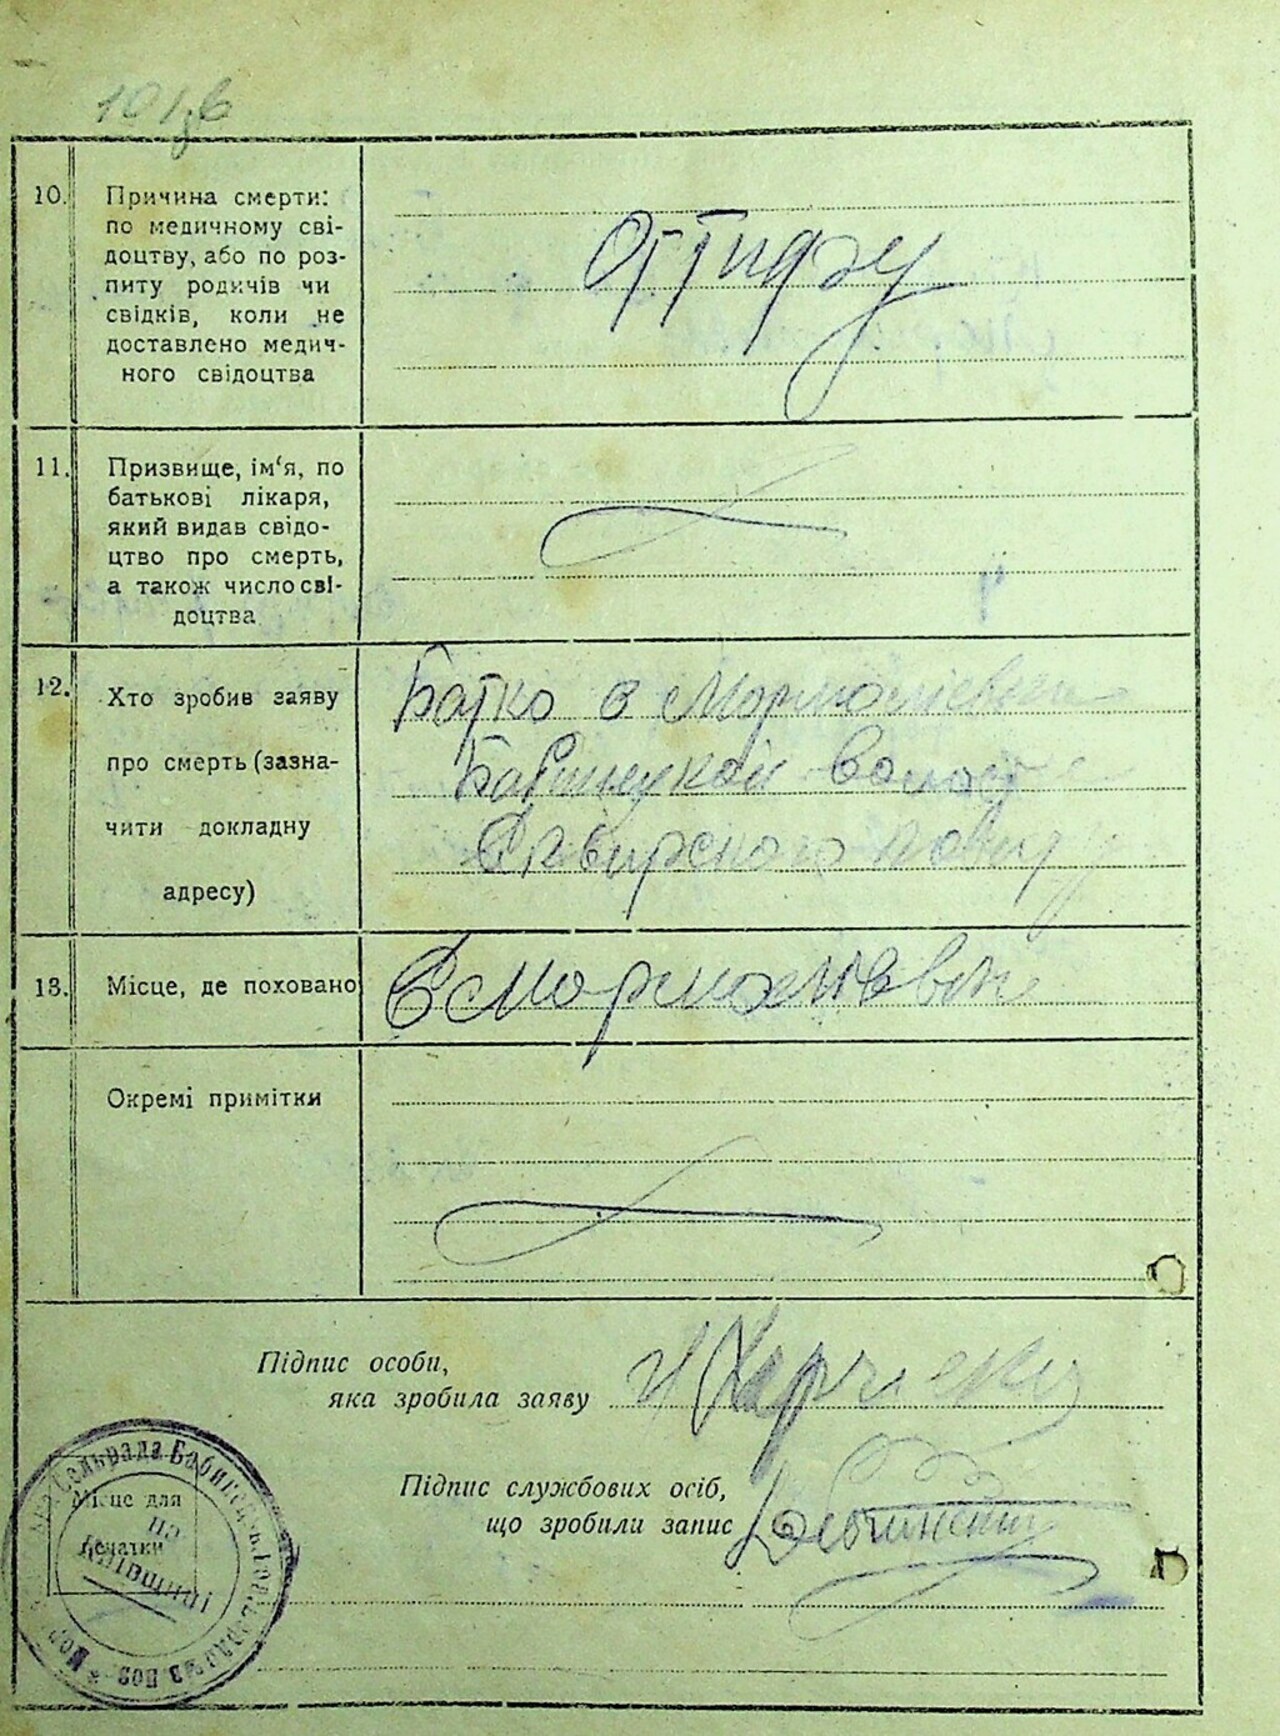 10.
Причина смерти:
по медичному сві-
доцтву, або по роз-
питу родичів чи
свідків, коли не
доставлено медич-
ного свідоцтва
От тифу
11.
Призвище, ім'я, по
батькові лікаря,
який видав свідо-
цтво про смерть,
а також число сві-
доцтва
12.
Хто зробив заяву
про смерть (зазна-
чити докладну
адресу)
Батко в
волост
повиту
13.
Місце, де поховано
Окремі примітки
Підпис особи,
яка зробила заяву
Харченко
Підпис службових осіб,
що зробили запис
Місце для
печатки
Сельрада
на
Київщині